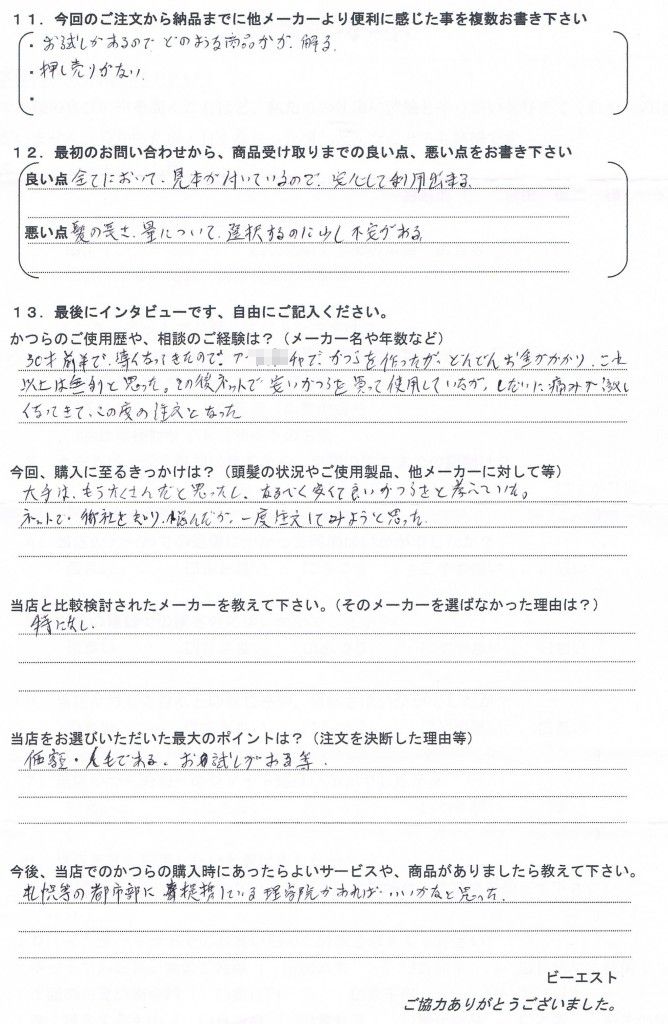 １１．今回のご注文から納品までに他メーカーより便利に感じた事を複数お書き下さい
・お試しがあるのでどのような商品かが、解る。
・押し売りがない。
・
１２．最初のお問い合わせから、商品受け取りまでの良い点、悪い点をお書き下さい
良い点 全てにおいて、見本が付いているので、安心して利用出来る。
悪い点 髪の長さ、量について、選択するのに少し不安がある。
１３．最後にインタビューです、自由にご記入ください。
かつらのご使用歴や、相談のご経験は？（メーカー名や年数など）
30才前半で、薄くなってきたので、ア・ 社で、かつらを作ったが、どんどんお金がかかり、これ
以上は無理と思った。その後ネットで安いかつらを買って使用しているが、しだいに痛みが激し
くなってきて、この度の注文となった
今回、購入に至るきっかけは？（頭髪の状況やご使用製品、他メーカーに対して等）
大手は、もうたくさんだと思ったし、なるべく安くて良いかつらをと考えていた。
ネットで、御社を知り、悩んだが、一度注文してみようと思った。
当店と比較検討されたメーカーを教えて下さい。（そのメーカーを選ばなかった理由は？）
特になし。
当店をお選びいただいた最大のポイントは？（注文を決断した理由等）
価額・人毛である。お試しがある等．
今後、当店でのかつらの購入時にあったらよいサービスや、商品がありましたら教えて下さい。
札幌等の都市部に 提携している理容院があれば、いいかなと思った．
ビーエスト
ご協力ありがとうございました。